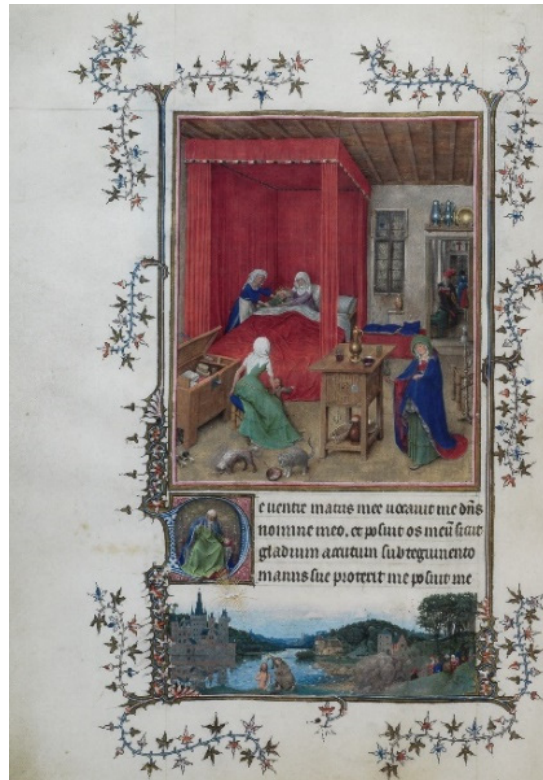 e ventre matris mee vocavit me dn̄s
nomine meo. et posuit os meū sicut
gladium accutum sub teguinento
manus sue protexit me posuit me